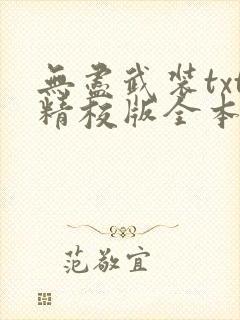 無盡武裝txt
精校版全本
范敬宜